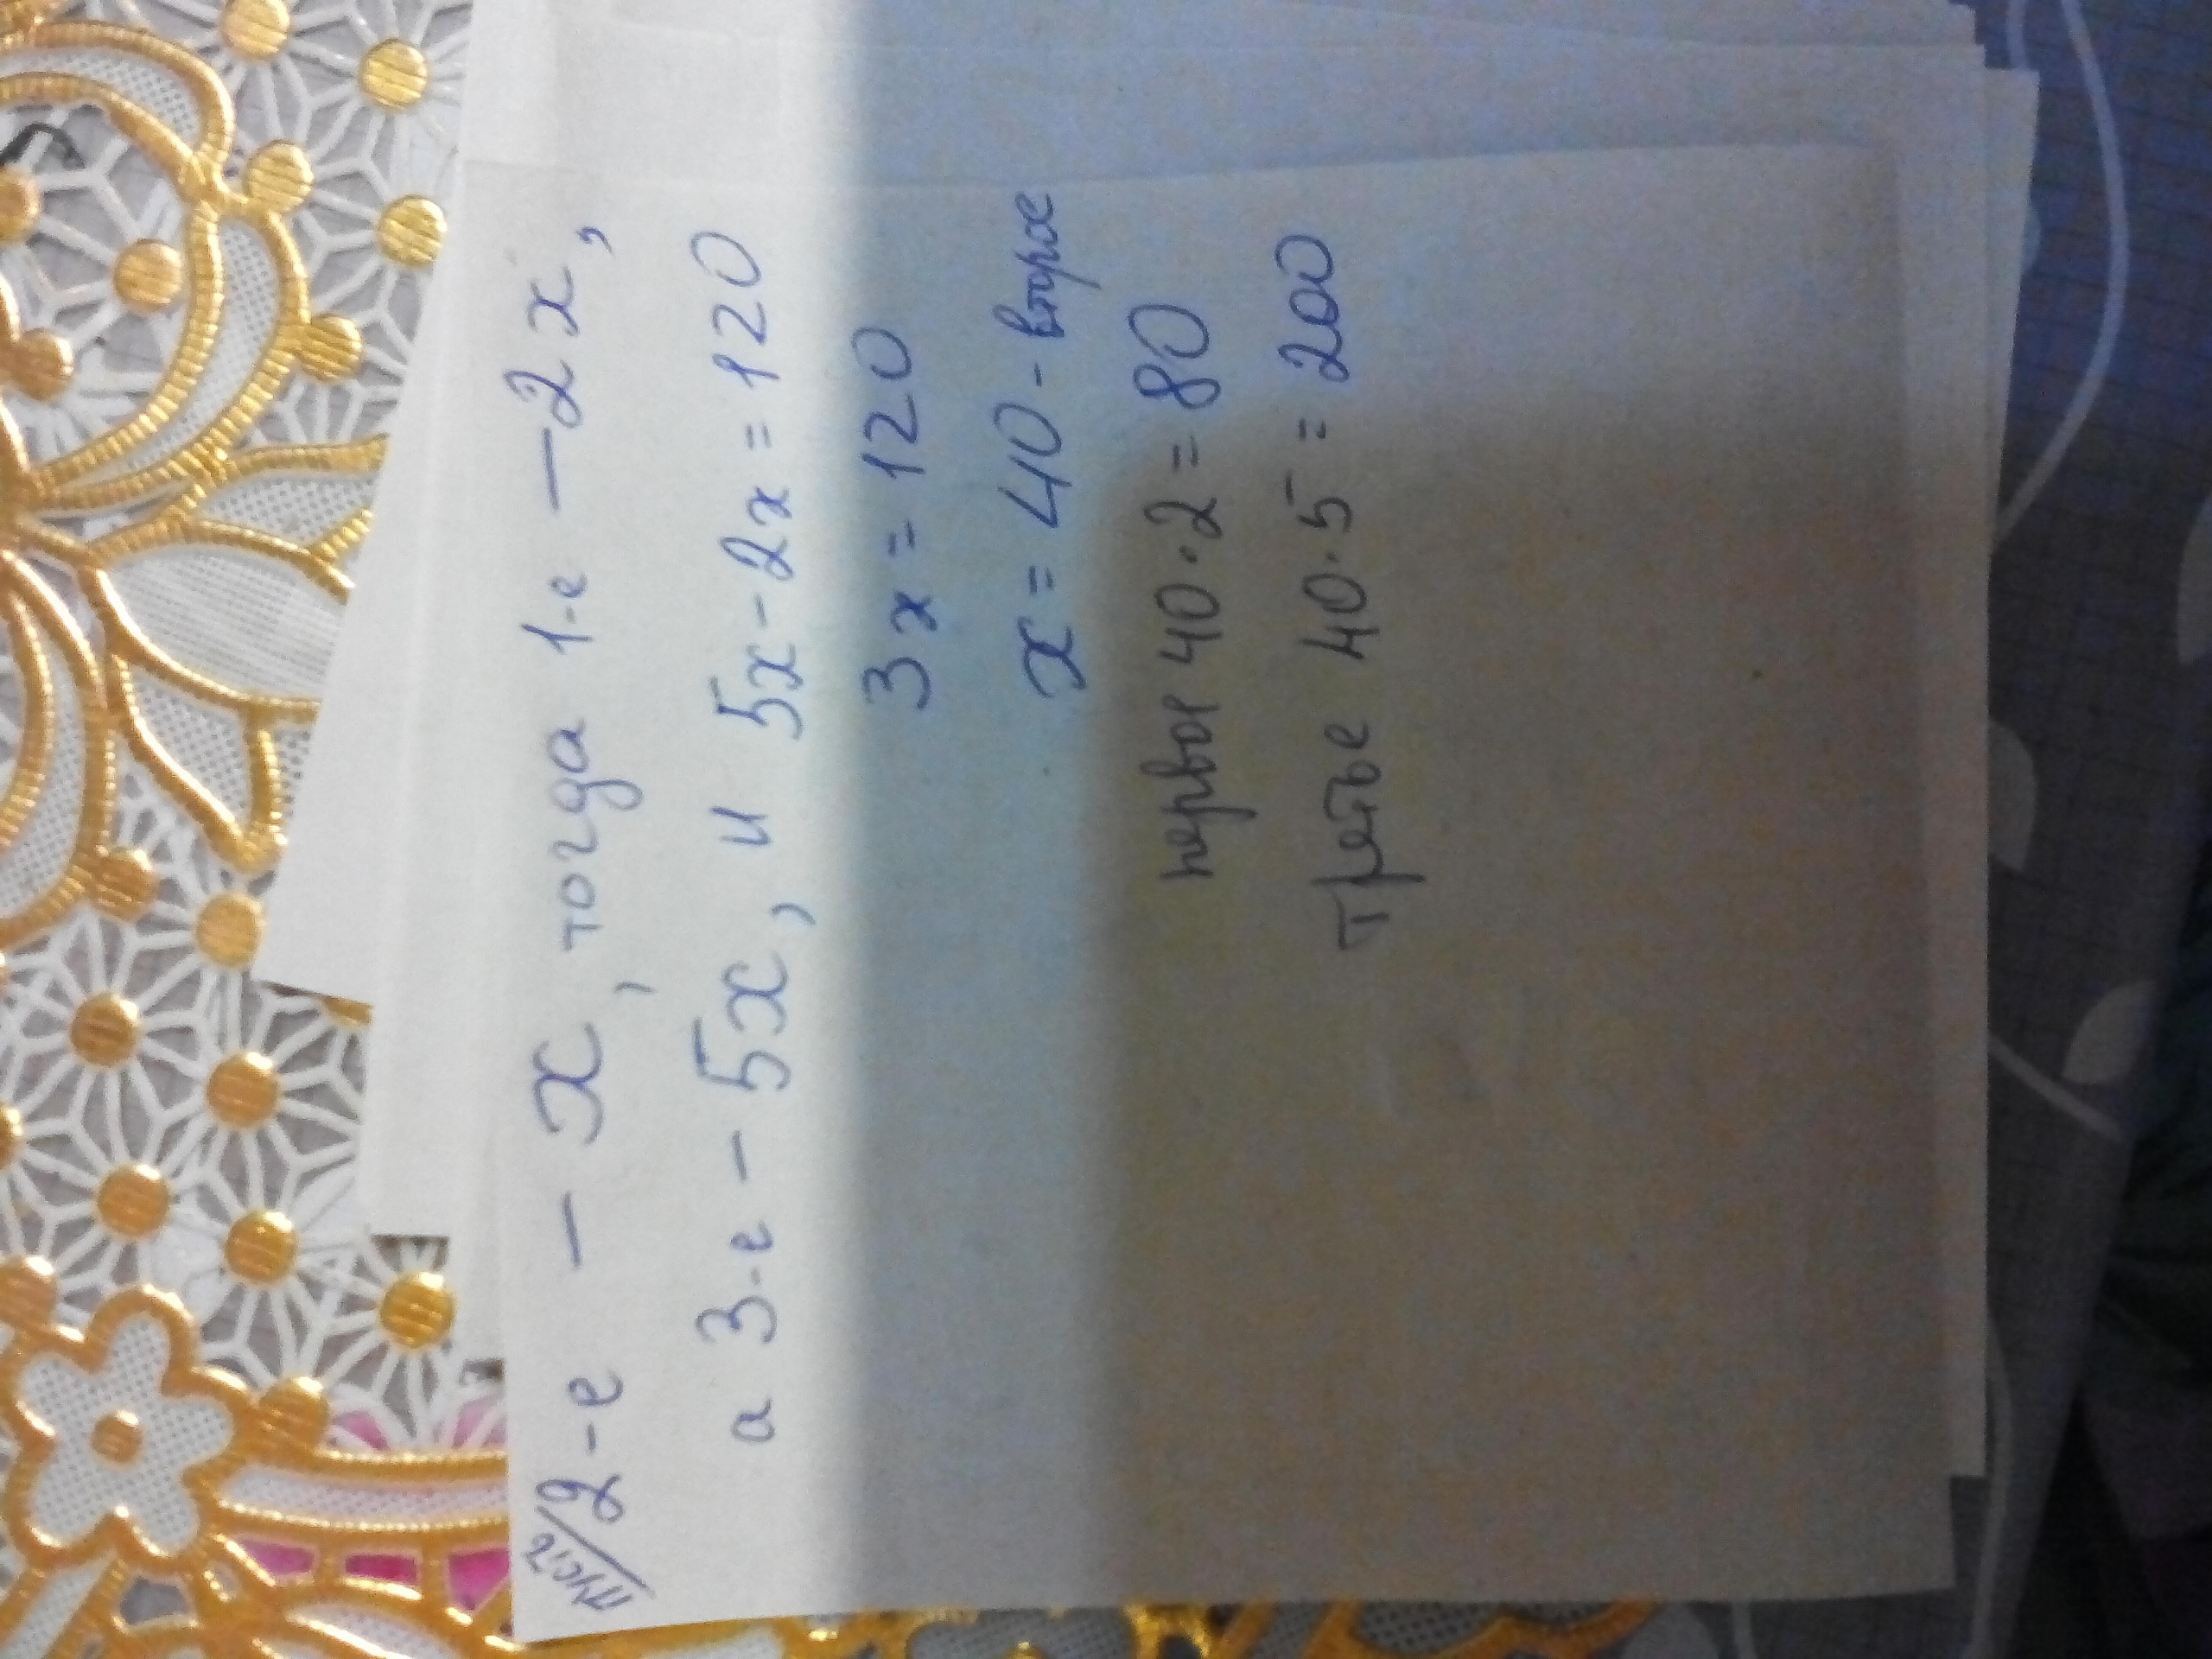 пусть/2-е – x, тогда 1-е – 2x,
а 3-е – 5x, и 5x - 2x = 120
3x = 120
x = 40 - второе
первое 40 · 2 = 80
третье 40 · 5 = 200